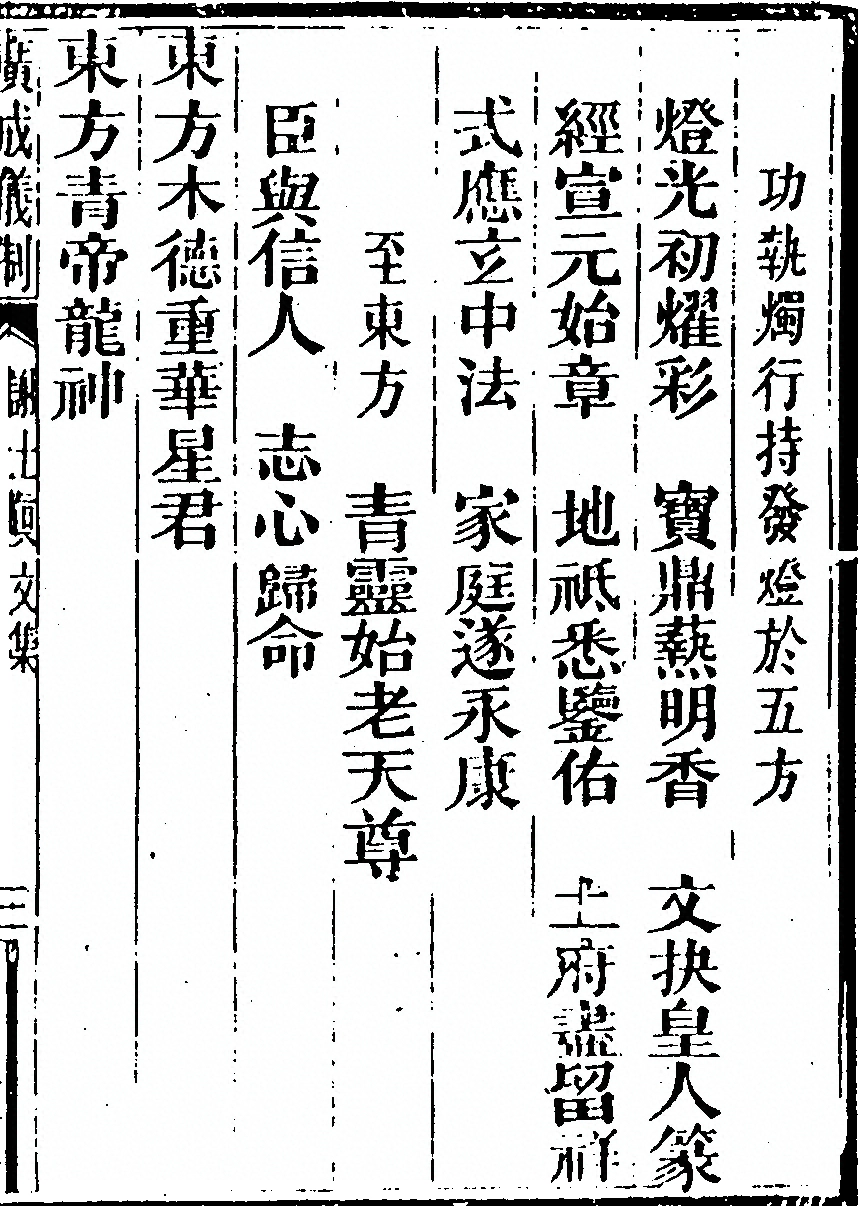 功執燭行持發燈於五方
燈光初燿彩　寶鼎爇明香　文抉皇人篆
經宣元始章　地祗悉鑒佑　土府盡留祥
式應立中法　家庭遂永康
至東方　青靈始老天尊
臣與信人　志心歸命
東方木德重華星君
東方青帝龍神
廣成儀制　謝土眞文集　三